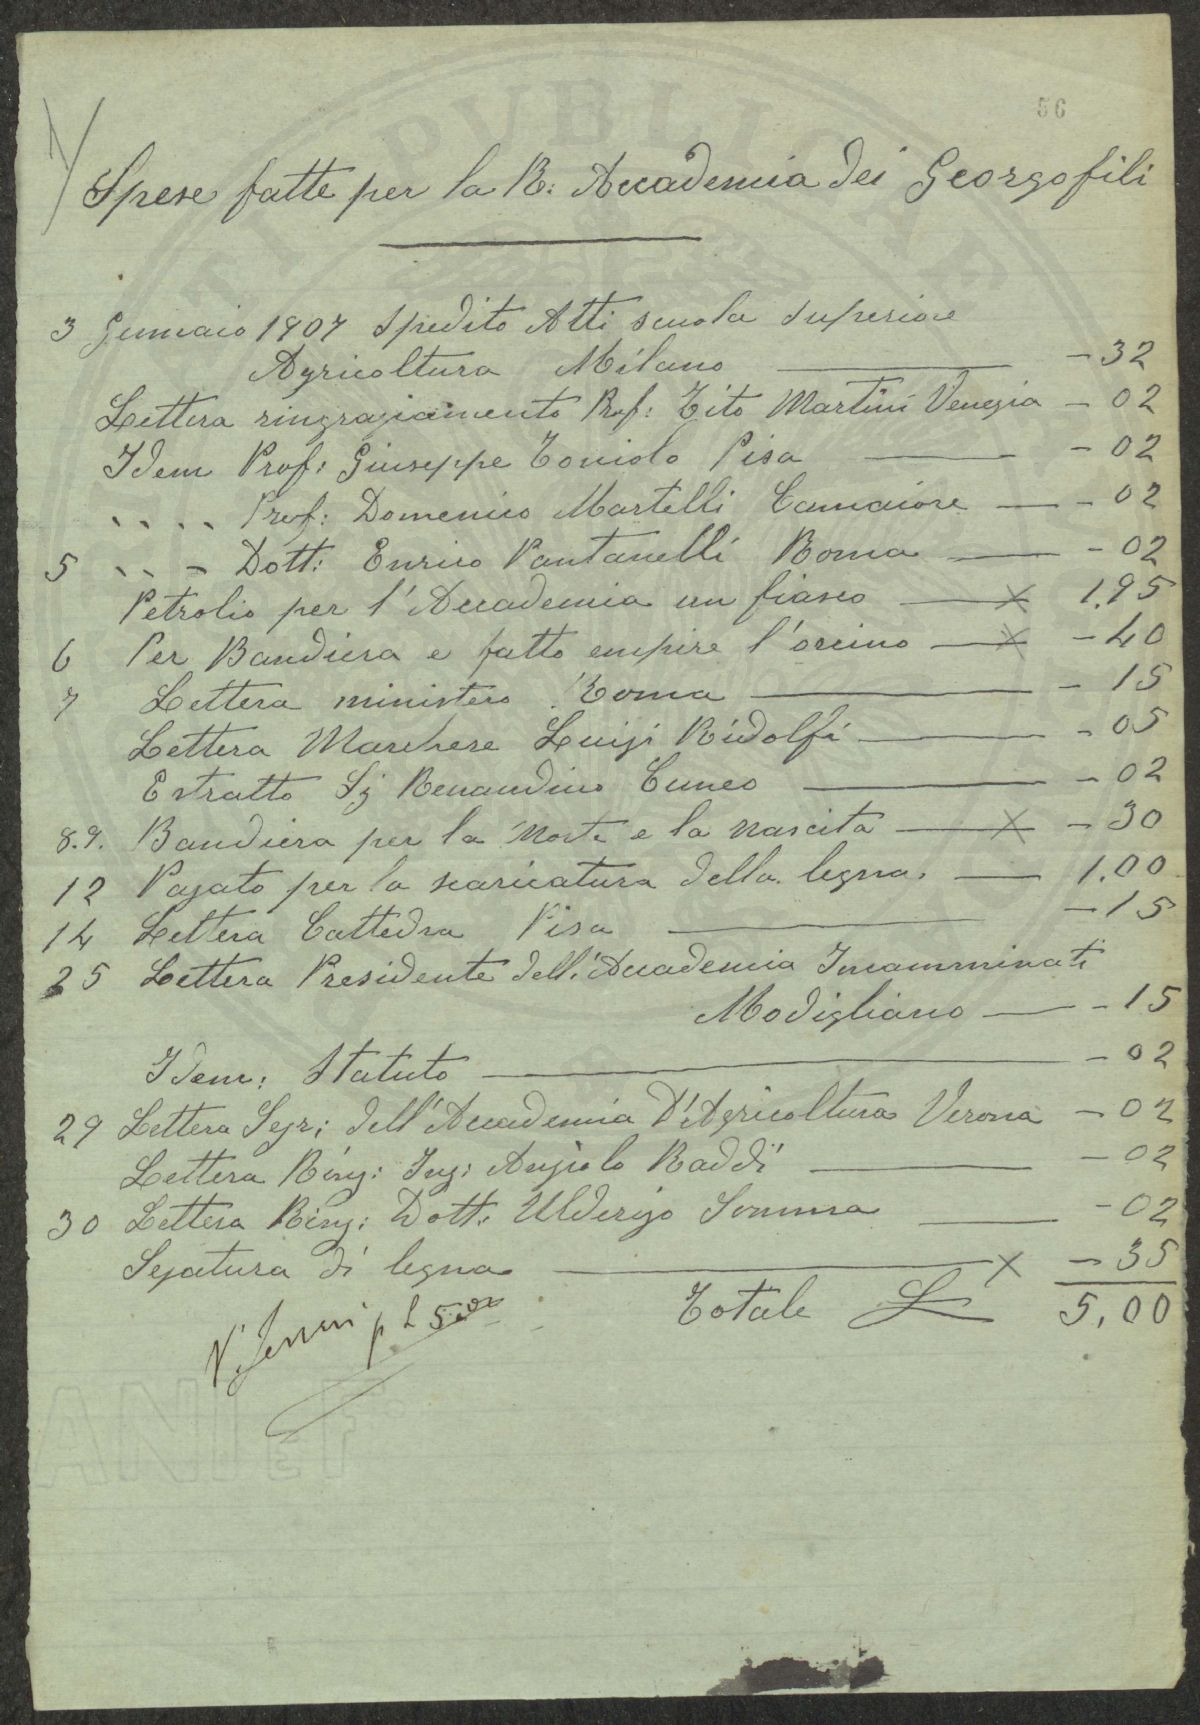 56
Spese fatte per la R: Accademia dei Georgofili
3 Gennaio 1907 Spedito Atti scuola superiore
Agricoltura Milano — - 32
Lettera ringraziamento Prof: Tito Martini Venezia - 02
Idem Prof: Giuseppe Toniolo Pisa — - 02
" " Prof: Domenico Martelli Camaiore — - 02
5 " " Dott: Enrico Pantanelli Roma — - 02
Petrolio per l'Accademia un fiasco — x 1.95
6 Per Bandiera e fatto empire l'orcino — x - 40
7 Lettera ministero Roma — - 15
Lettera Marchese Luigi Ridolfi — - 05
Estratto Sig Renaudino Cuneo — - 02
8.9. Bandiera per la morte e la nascita — x - 30
12 Pagato per la scaricatura della legna. — 1.00
14 Lettera Cattedra Pisa — - 15
25 Lettera Presidente dell'Accademia Incamminati
Modigliano — - 15
Idem: Statuto — - 02
29 Lettera Segr: dell'Accademia D'Agricoltura Verona - 02
Lettera Ring: Ing: Angiolo Raddi — - 02
30 Lettera Ring: Dott: Ulderigo Somma — - 02
Segatura di legna — x - 35
Totale L 5.00
p L 5.00
PVBLICAE